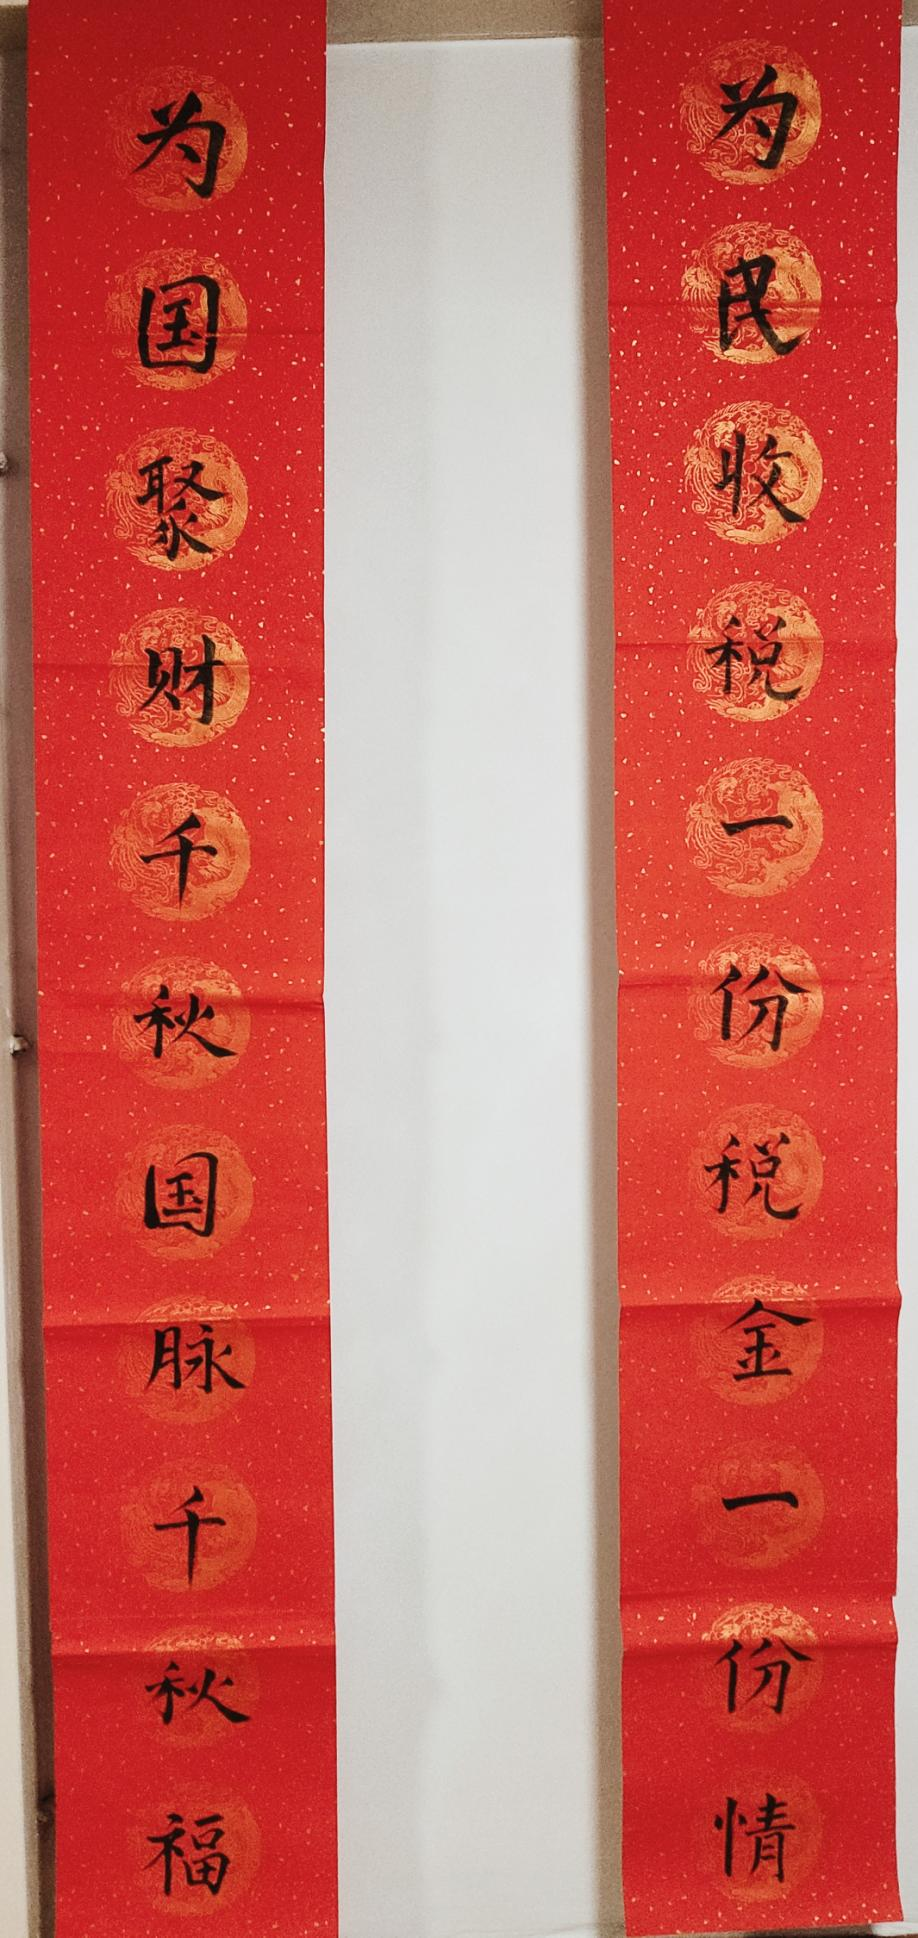 为民收税一份税金一份情
为国聚财千秋国脉千秋福